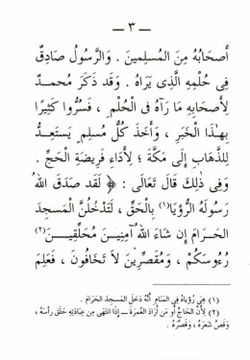 — ٣ —
أَصحَابُهُ مِنَ المُسلِمينَ . وَالرَّسُولُ صَادِقٌ
فِى حُلْمِهِ الَّذِى يَرَاهُ . وَقَد ذَكَرَ مُحمدٌ
لِأَصحَابِهِ مَا رَآهُ فِى الحُلْمِ ، فَسُرُّوا كَثِيرًا
بِهذَا الخَبَرِ ، وَأَخَذَ كُلُّ مُسلِمٍ يَستَعِدُّ
لِلذَّهَابِ إِلَى مَكَّةَ ؛ لِأَدَاءِ فَرِيضَةِ الحَجِّ .
وَفِى ذلِكَ قَالَ تَعَالَى : ﴿ لَقَد صَدَقَ اللهُ
رَسُولَهُ الرُّؤيَا(١) بِالحَقِّ ، لَتَدخُلُنَّ المَسجِدَ
الحَرَامَ إِن شَاءَ اللهُ آمِنِينَ مُحَلِّقِينَ(٢)
رُءُوسَكُمْ ، وَمُقَصِّرِينَ لَا تَخَافُونَ ، فَعَلِمَ
(١) هِىَ رُؤيَاهُ فِى المَنَامِ أَنَّهُ دَخَلَ المَسجِدَ الحَرَامَ .
(٢) لِأَنَّ الحَاجَّ أَو مَن أَرَادَ العُمرَةَ — إِذَا انتَهَى مِن عِبَادَتِهِ حَلَقَ رَأسَهُ ،
وَقَصَّ شَعرَهُ ، وَقَصَّرَهُ .